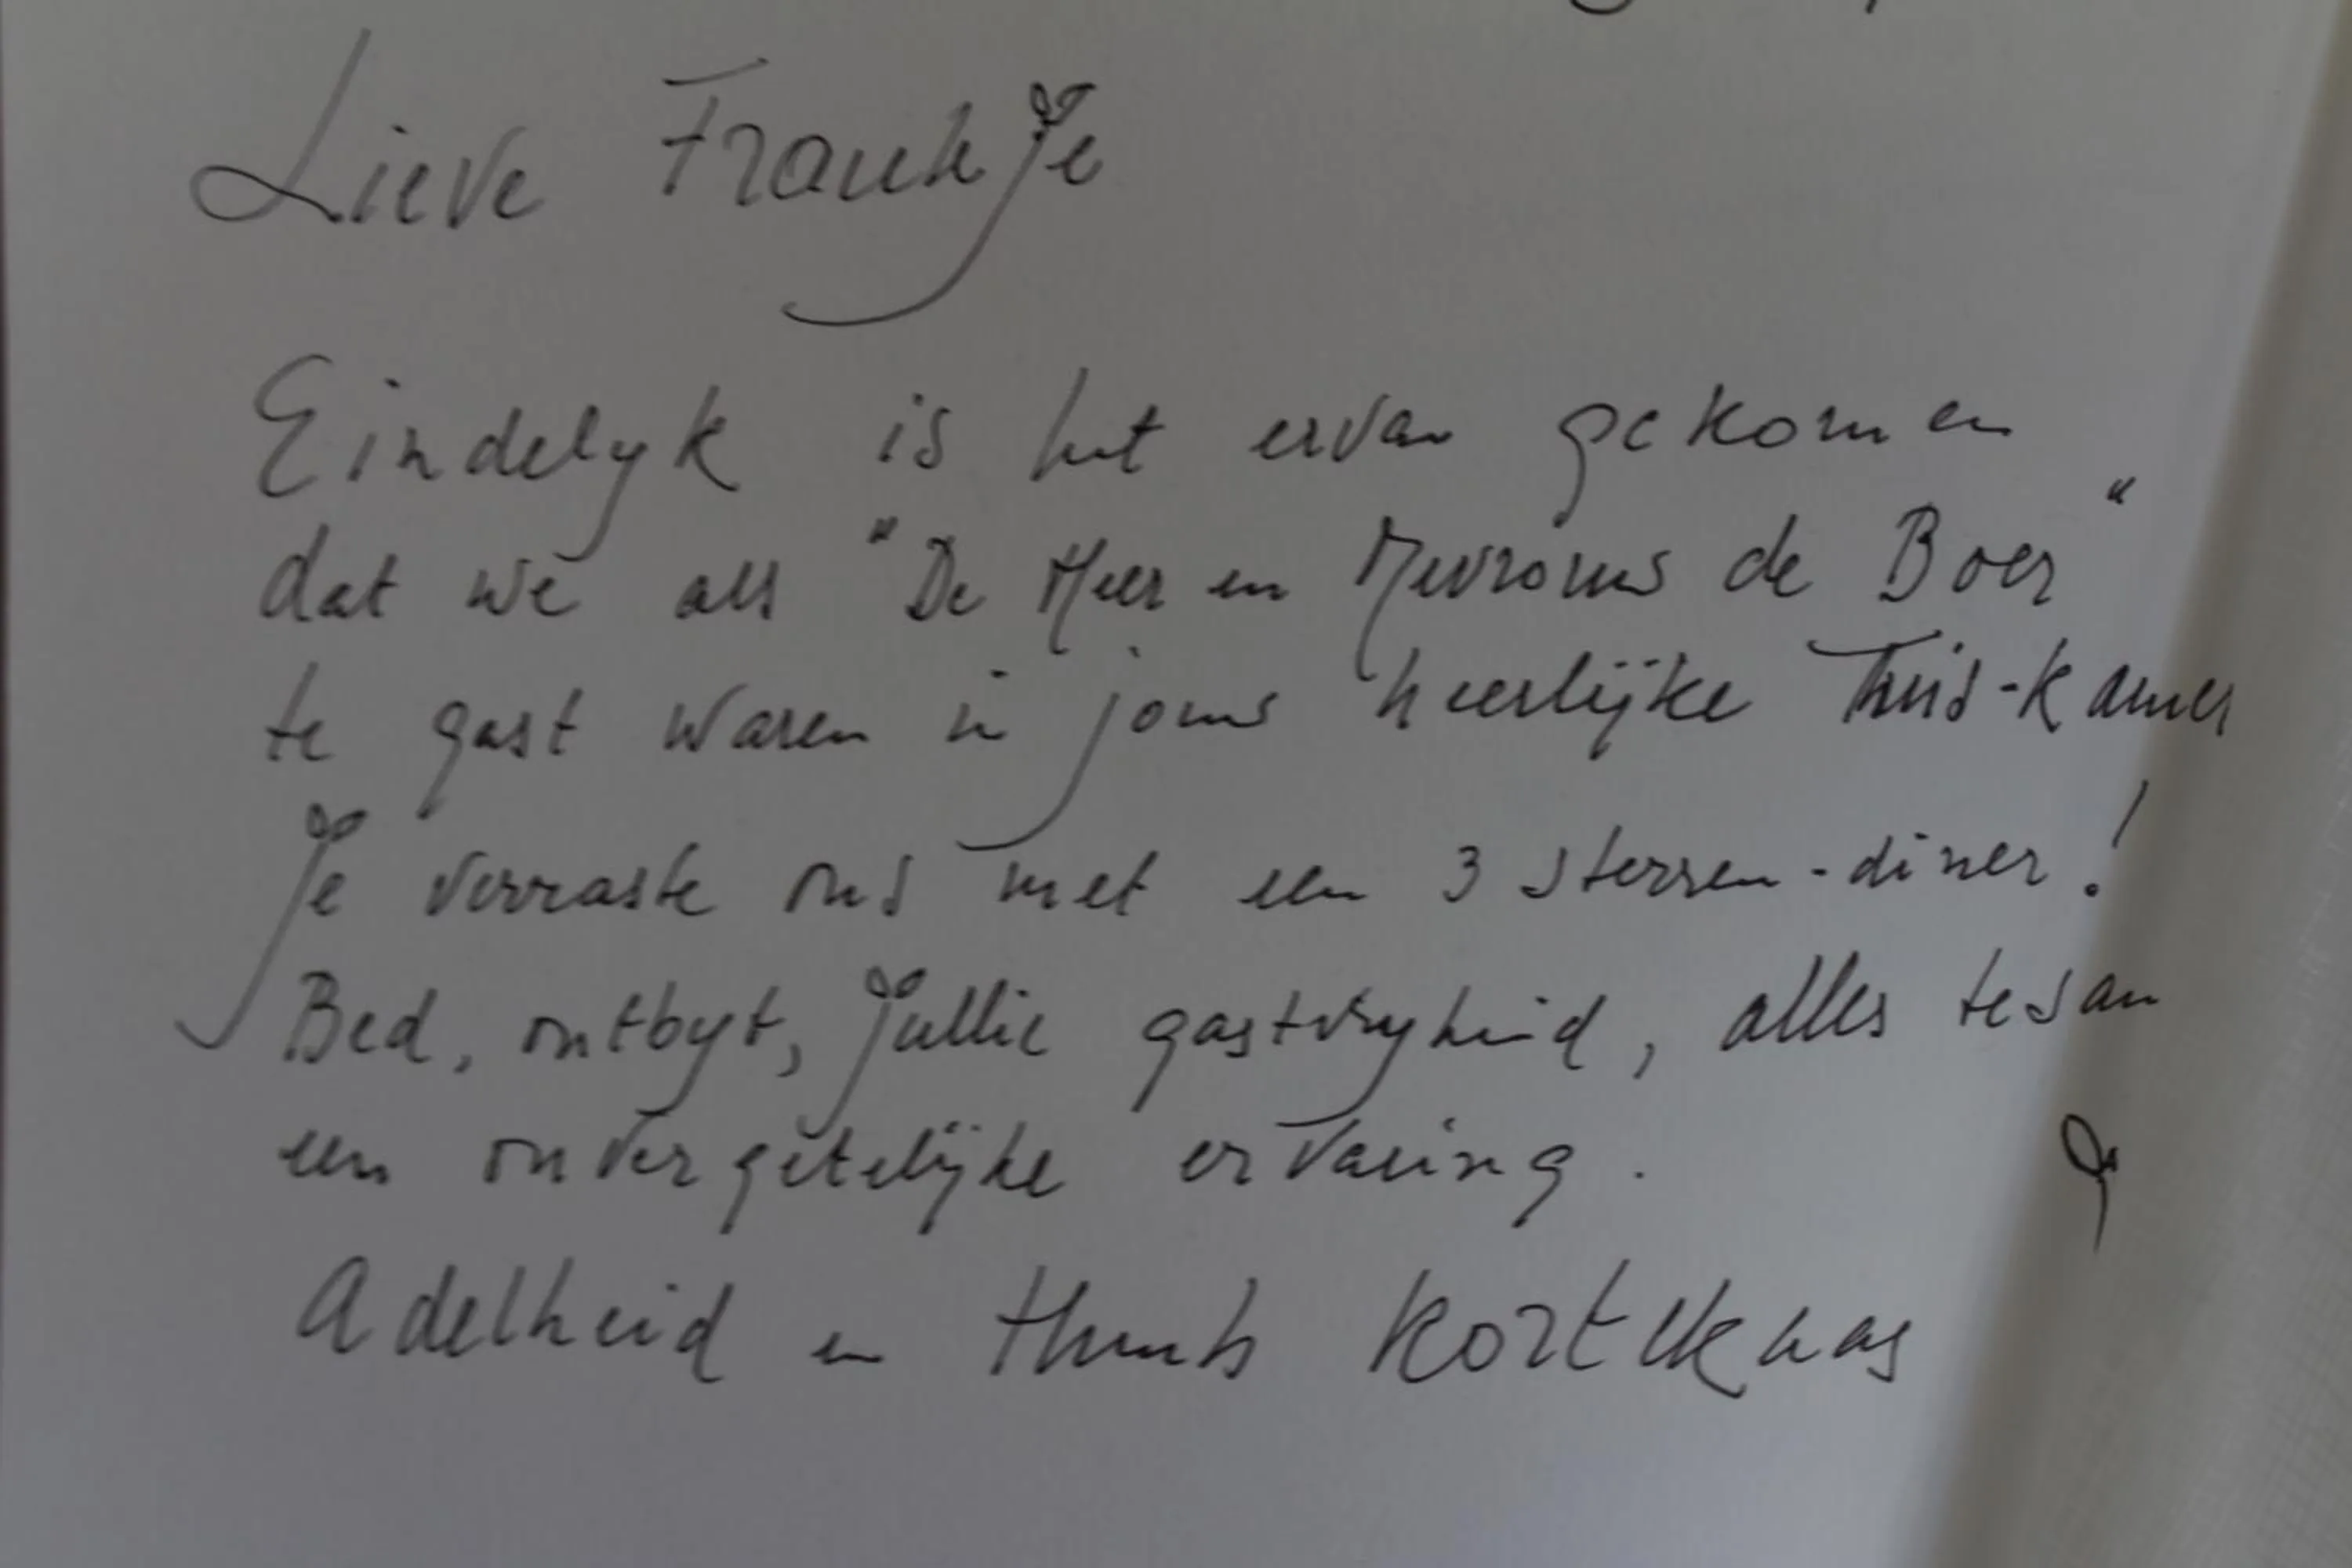 Lieve Fraukje
Eindelyk is het ervan gekomen
dat we als "De Heer en Mevrouw de Boer"
te gast waren in jouw heerlijke Thuis-kamer
Je verraste ons met een 3 sterren-diner!
Bed, ontbyt, jullie gastvryheid, alles tesam
een onvergetelijke ervaring.
Adelheid en Kortekaas